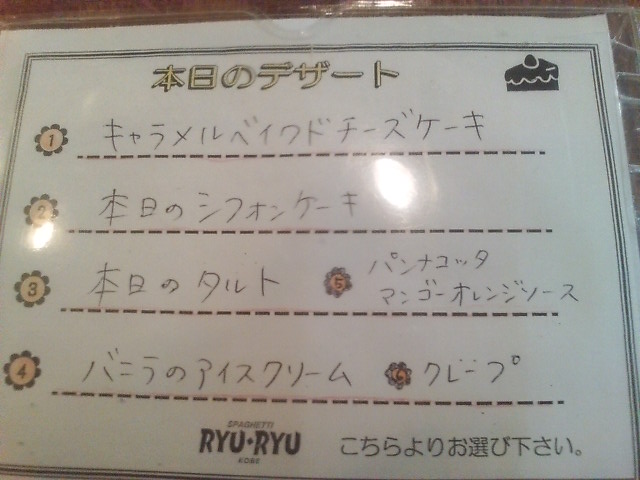 本日のデザート
1 キャラメルベイクドチーズケーキ
2 本日のシフォンケーキ
3 本日のタルト
5 パンナコッタ
マンゴーオレンジソース
4 バニラのアイスクリーム
6 クレープ
SPAGHETTI
RYU・RYU
KOBE
こちらよりお選び下さい。